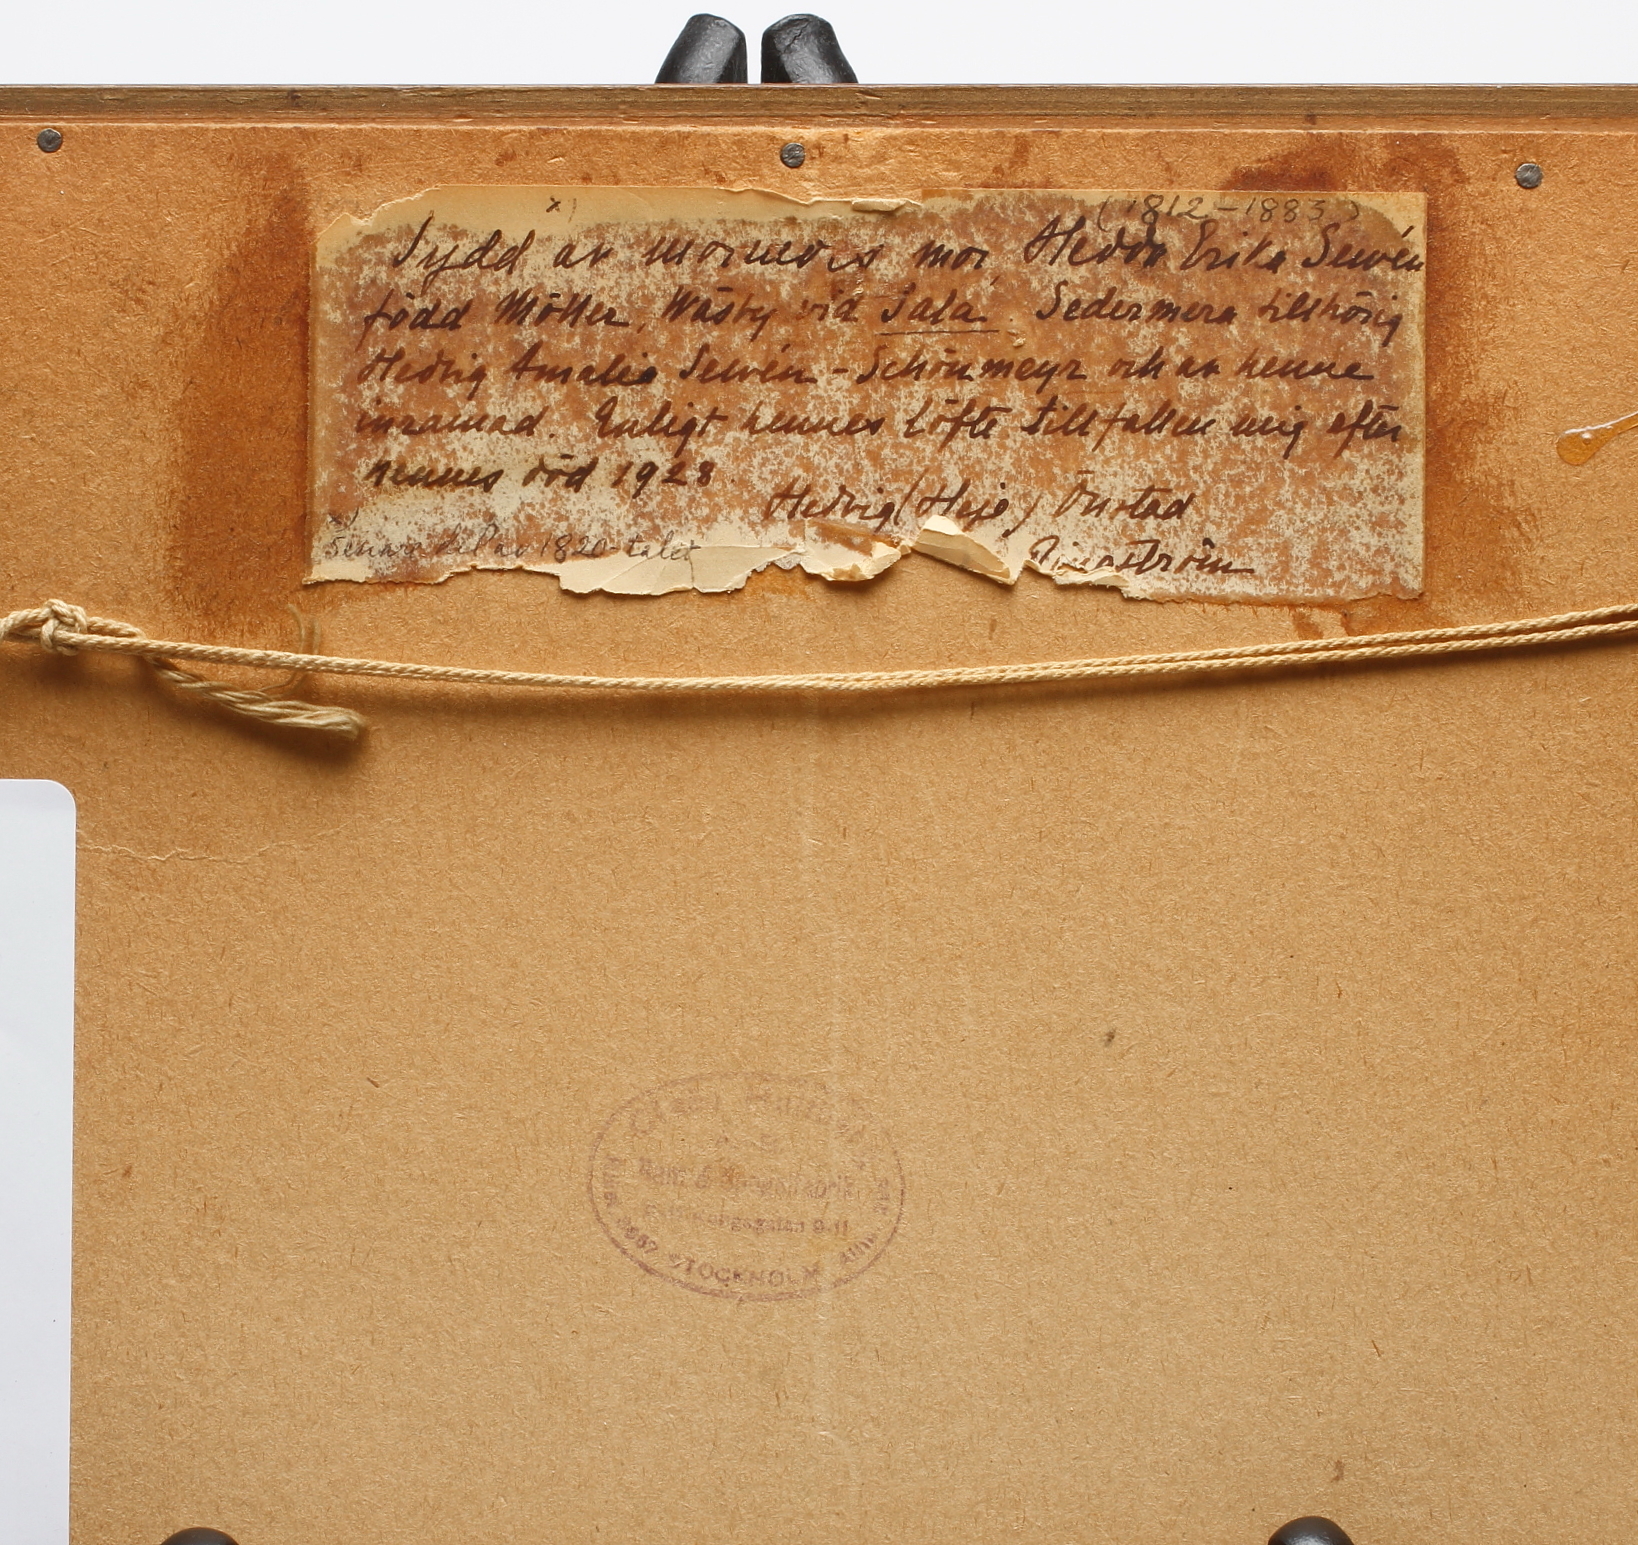 x)
(1812-1883)
Sydd av mormors mor, Hedda Erika Sewén
född Möller, Wäsby vid Sala. Sedermera tillhörig
Hedvig Amalia Sewén-Schönmeyr och av henne
inramad. Enligt hennes löfte tillfallen mig efter
hennes död 1928.
Hedvig (Heje) Önstad
x)
Senare del av 1820-talet
Ram &
9-11
STOCKHOLM